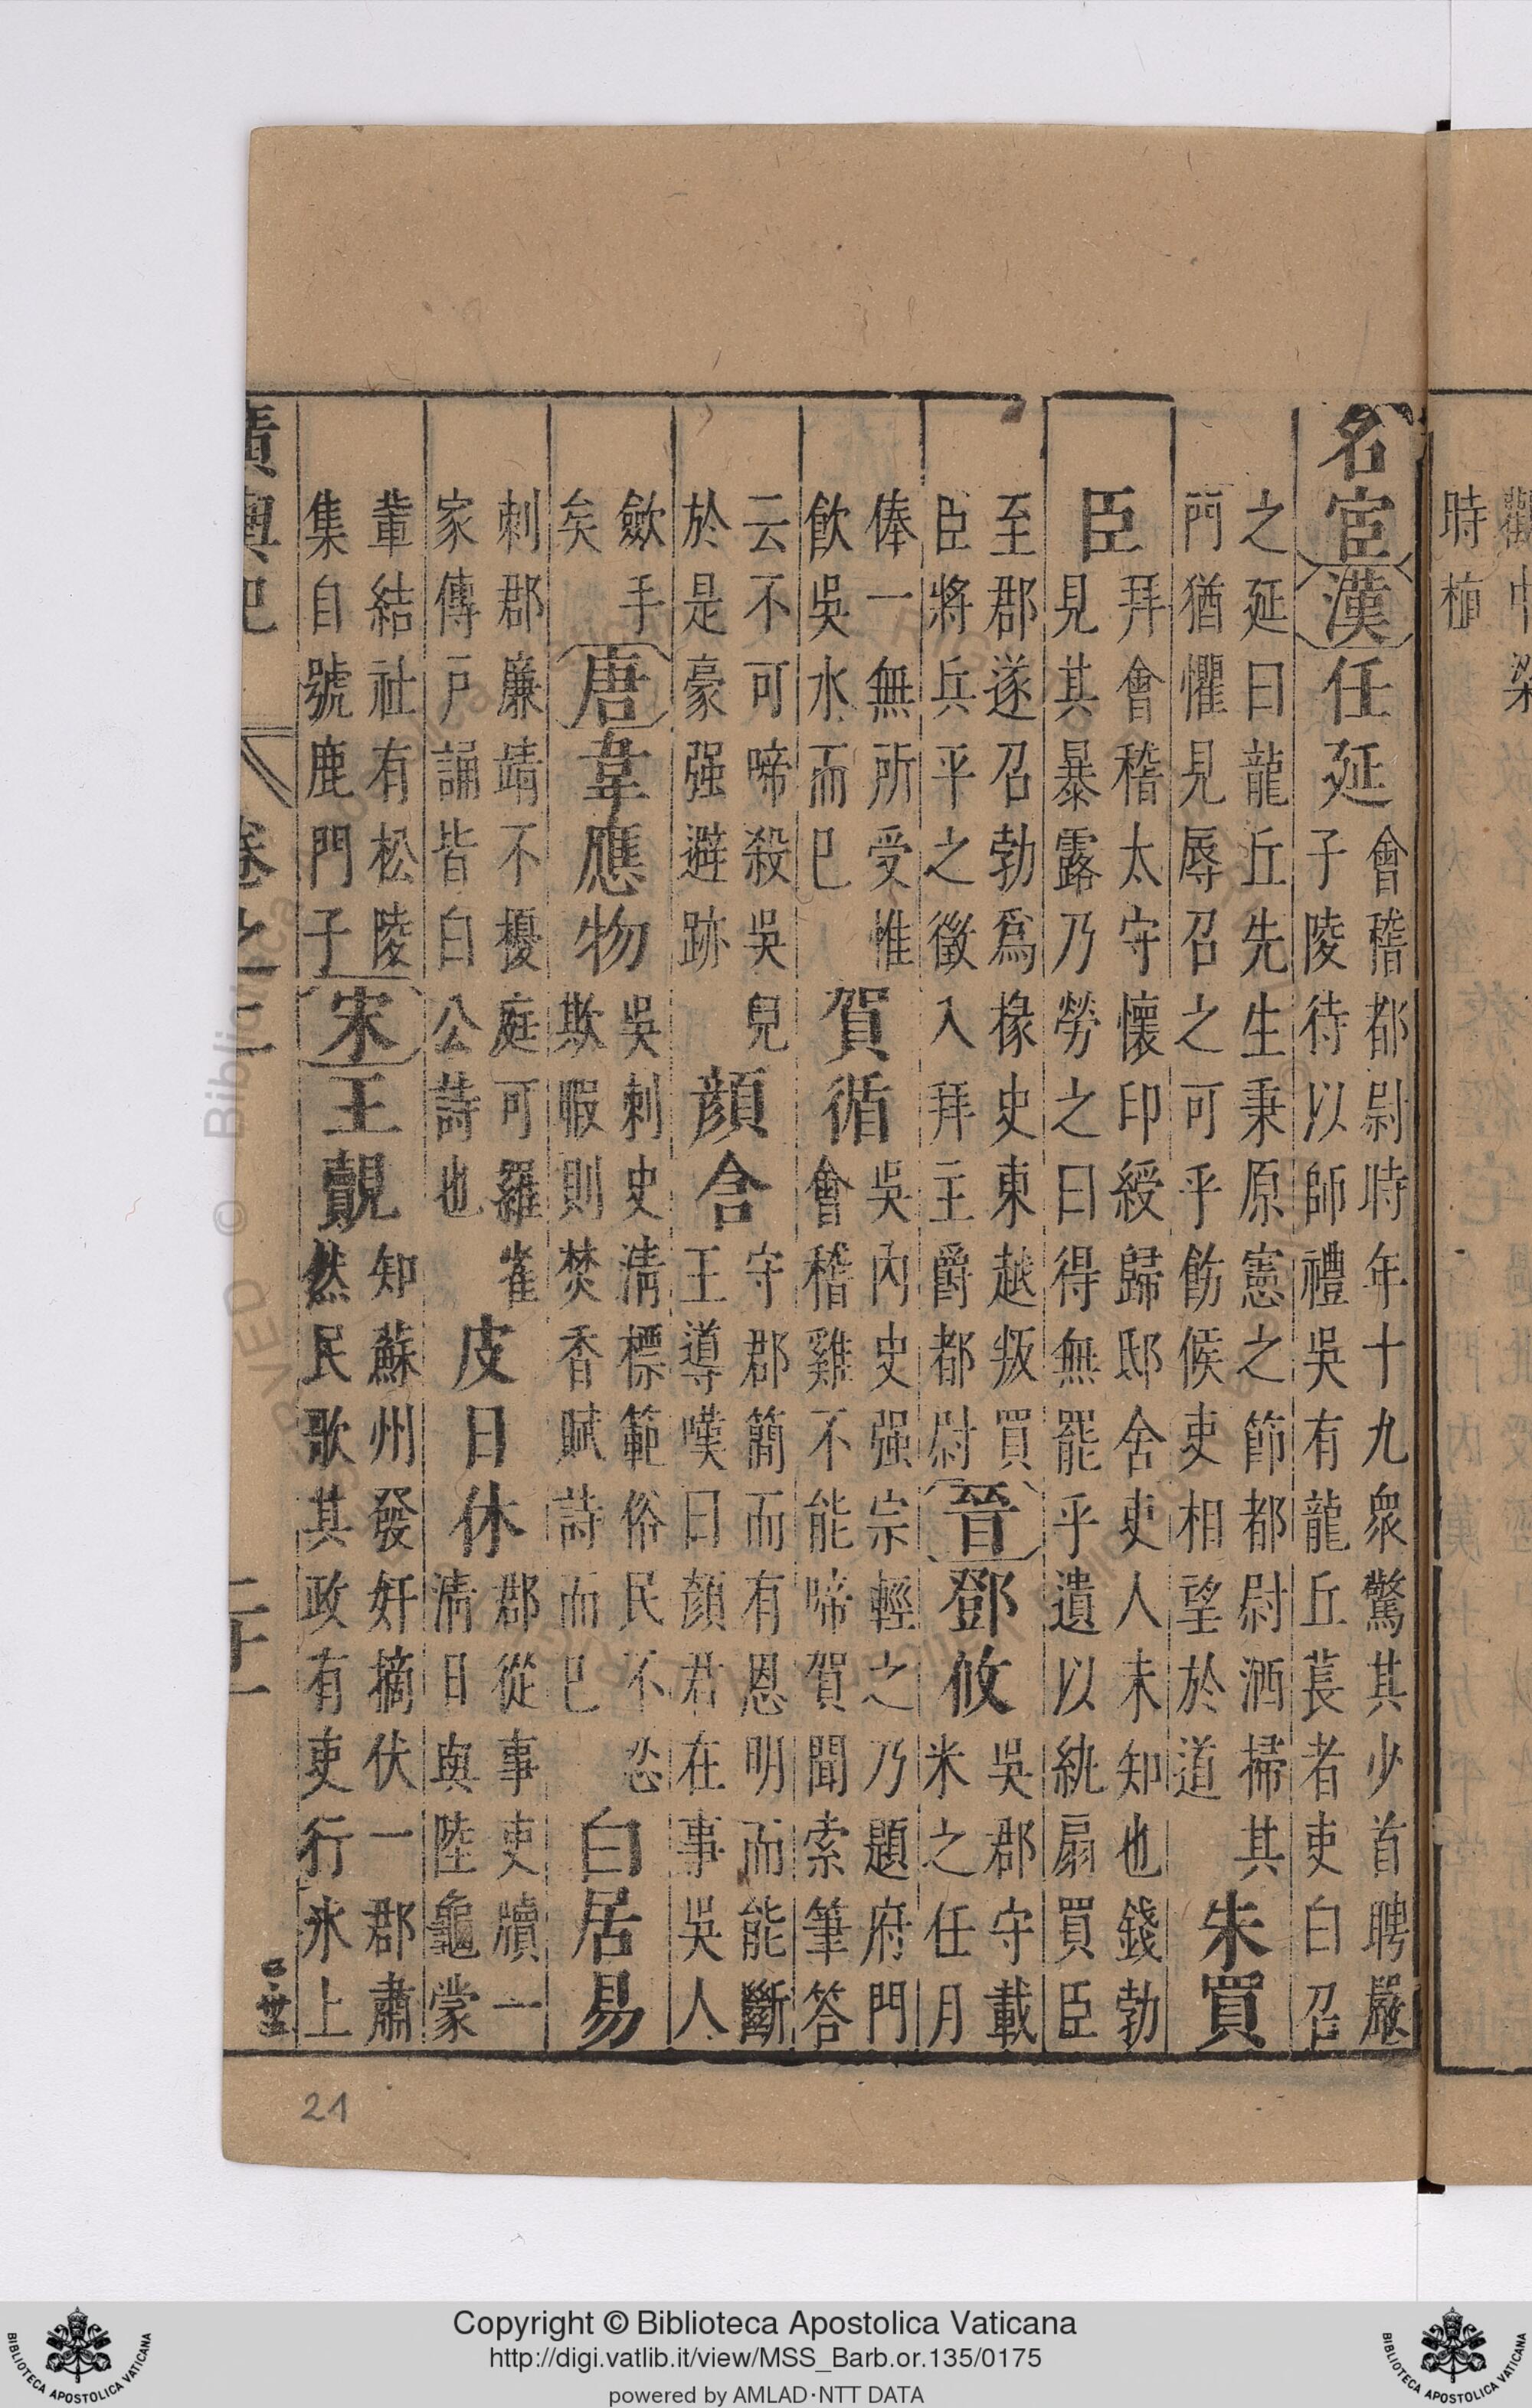 時植
名宦 漢 任延 會稽都尉時年十九衆驚其少首聘嚴
子陵待以師禮吳有龍丘萇者吏白召
之延曰龍丘先生秉原憲之節都尉洒掃其
門猶懼見辱召之可乎飭候吏相望於道 朱買
臣 拜會稽太守懷印綬歸邸舍吏人未知也錢勃
見其暴露乃勞之曰得無罷乎遺以紈扇買臣
至郡遂召勃爲掾史東越叛買
臣將兵平之徵入拜主爵都尉 晉 鄧攸 吳郡守載
米之任月
俸一無所受惟
飲吳水而已 賀循 吳內史强宗輕之乃題府門
會稽雞不能啼賀聞索筆答
云不可啼殺吳兒
於是豪强避跡 顏含 守郡簡而有恩明而能斷
王導嘆曰顏君在事吳人
歛手
矣 唐 韋應物 吳刺史淸標範俗民不忍
欺暇則焚香賦詩而已 白居易
刺郡廉靖不擾庭可羅雀
家傳戶誦皆白公詩也 皮日休 郡從事吏牘一
淸日與陸龜蒙
輩結社有松陵
集自號鹿門子 宋 王覿 知蘇州發奸摘伏一郡肅
然民歌其政有吏行氷上
廣輿記 卷之三 二十一
21
Copyright © Biblioteca Apostolica Vaticana
http://digi.vatlib.it/view/MSS_Barb.or.135/0175
powered by AMLAD·NTT DATA
BIBLIOTECA APOSTOLICA VATICANA
BIBLIOTECA APOSTOLICA VATICANA